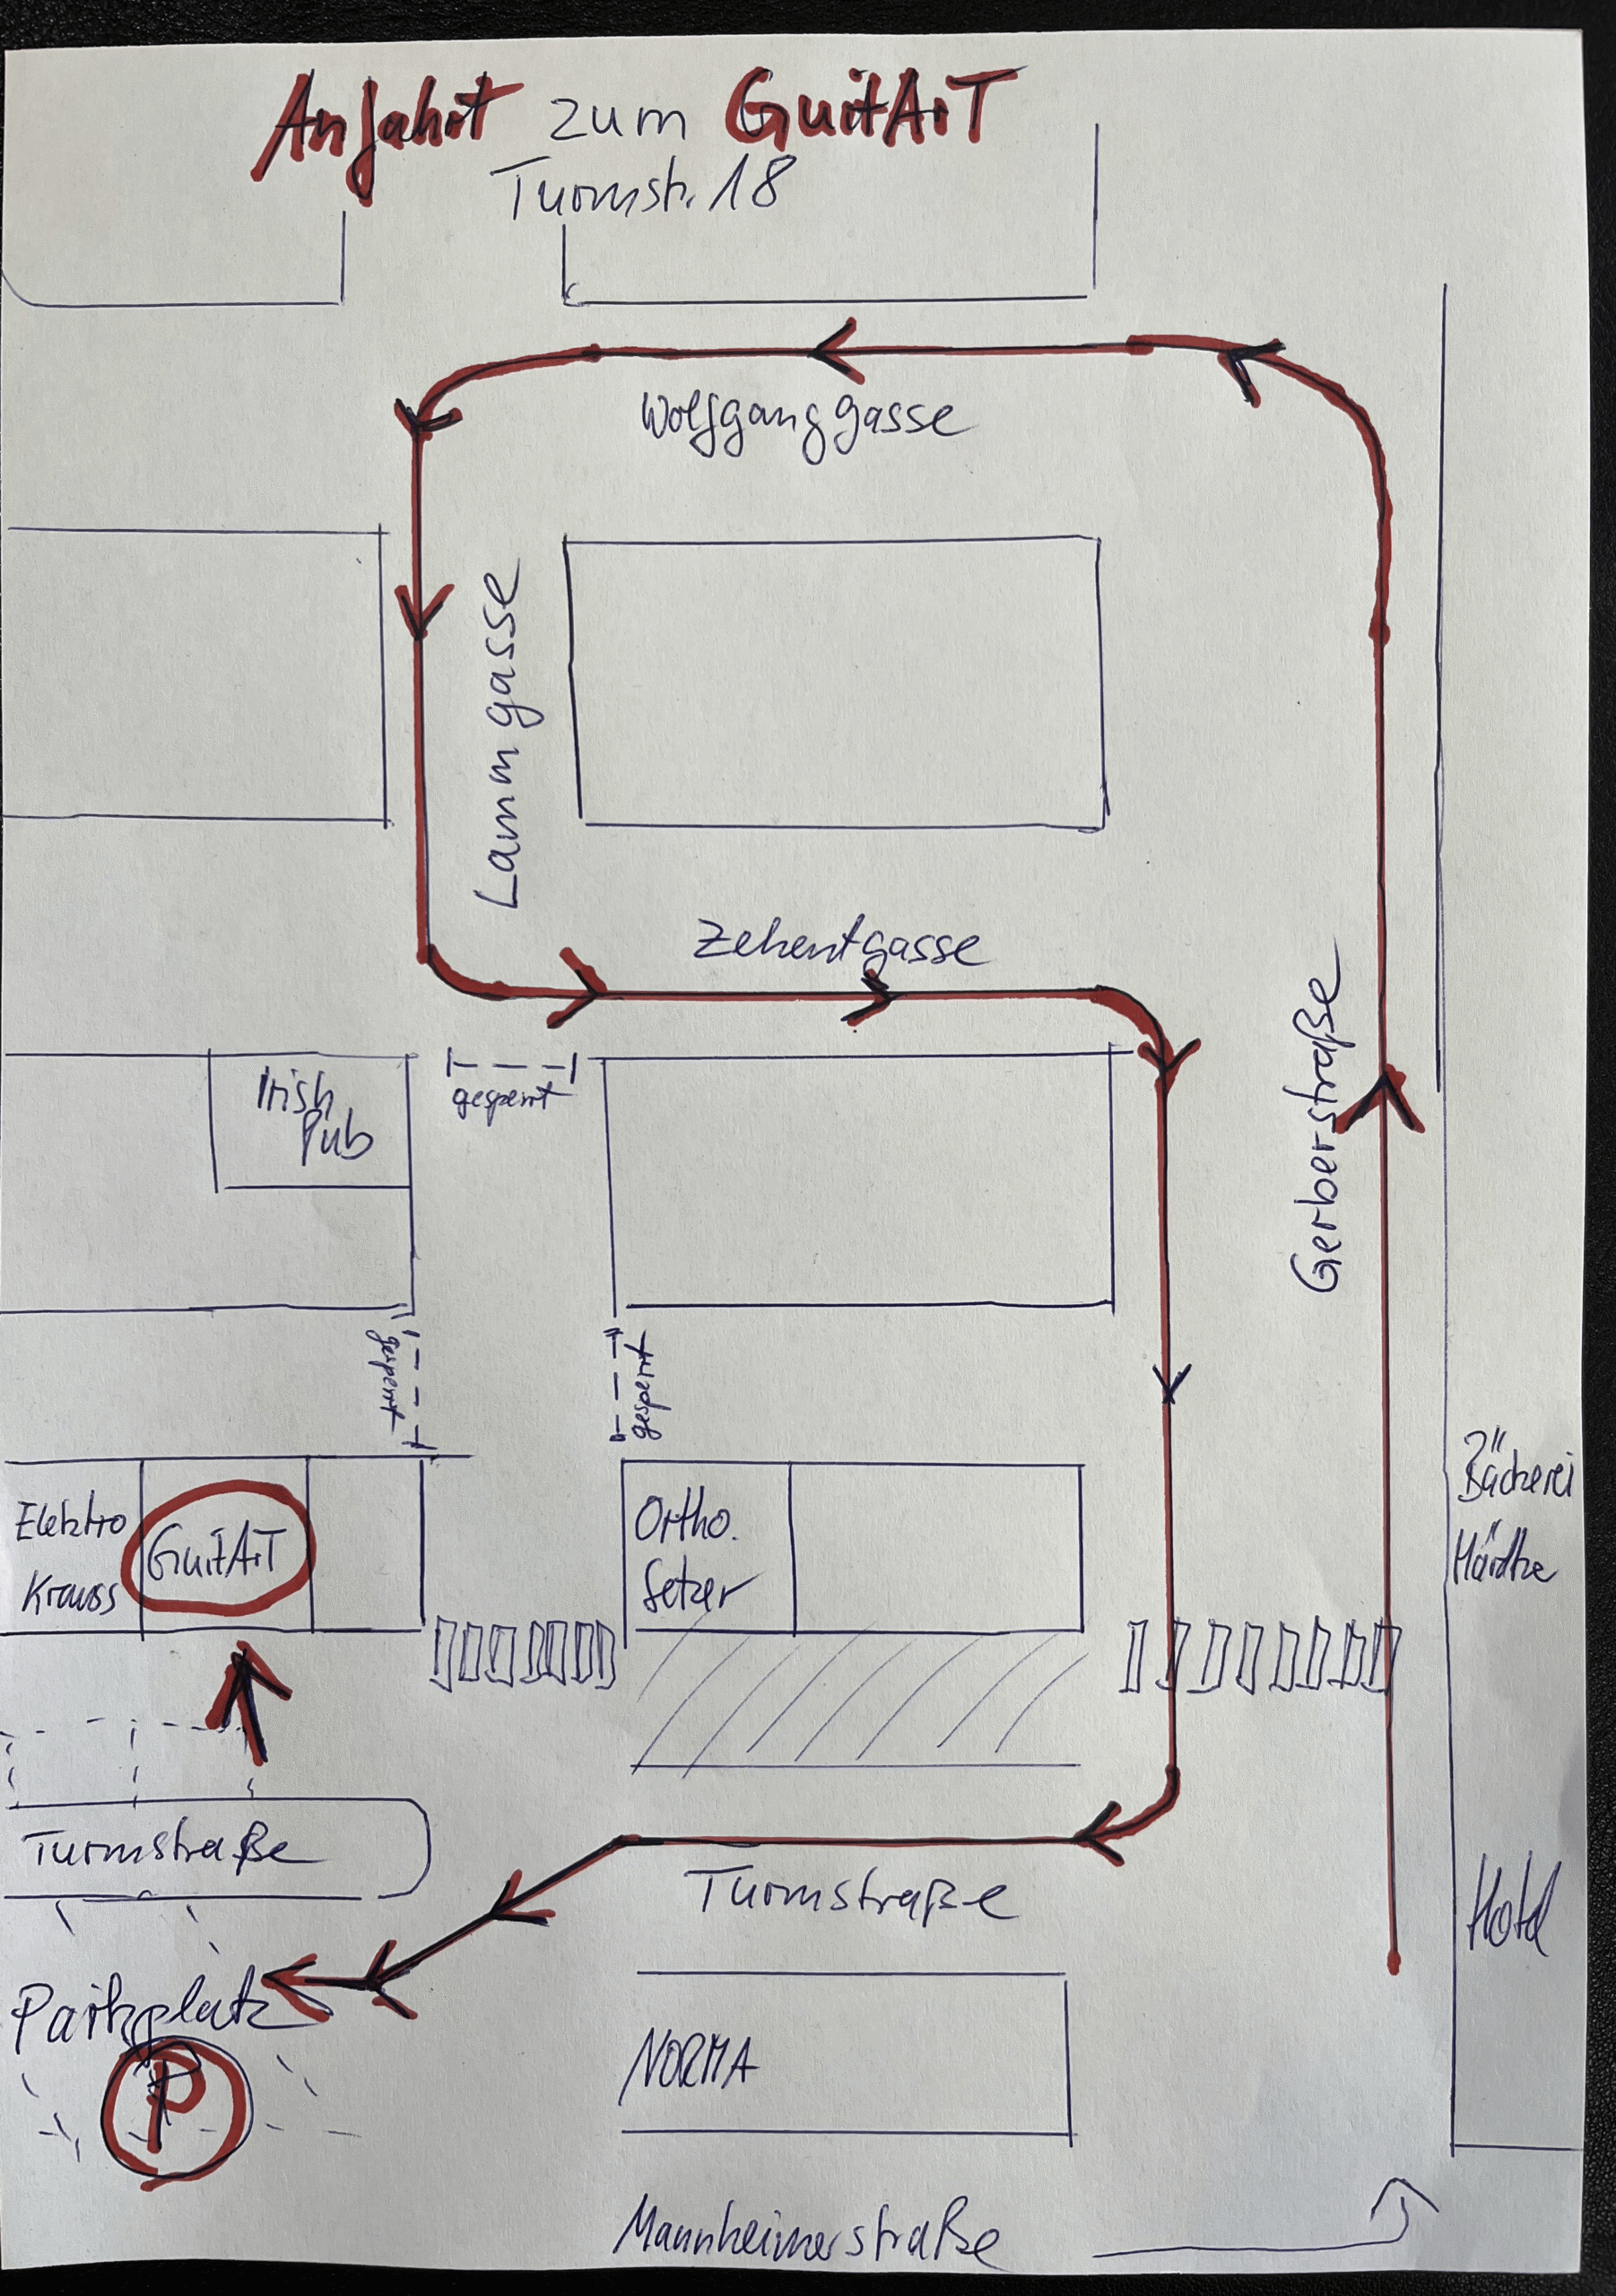 Anfahrt zum GuitArT
Turmstr. 18
Wolfganggasse
Lammgasse
Zehentgasse
Gerberstraße
Irish
Pub
gesperrt
gesperrt
gesperrt
Elektro
Krauss
GuitArT
Ortho.
Setzer
Bäckerei
Härdtke
Turmstraße
Turmstraße
Hotel
Parkplatz
P
NORMA
Mannheimerstraße